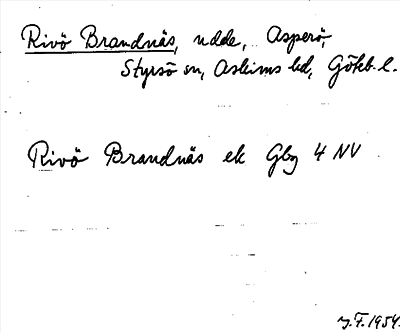 Rivö Brandnäs, udde, Asperö,
Styrsö sn, Askims hd, Göteb. l.
Rivö Brandnäs ek Gbg 4 NV
J.F. 1954.